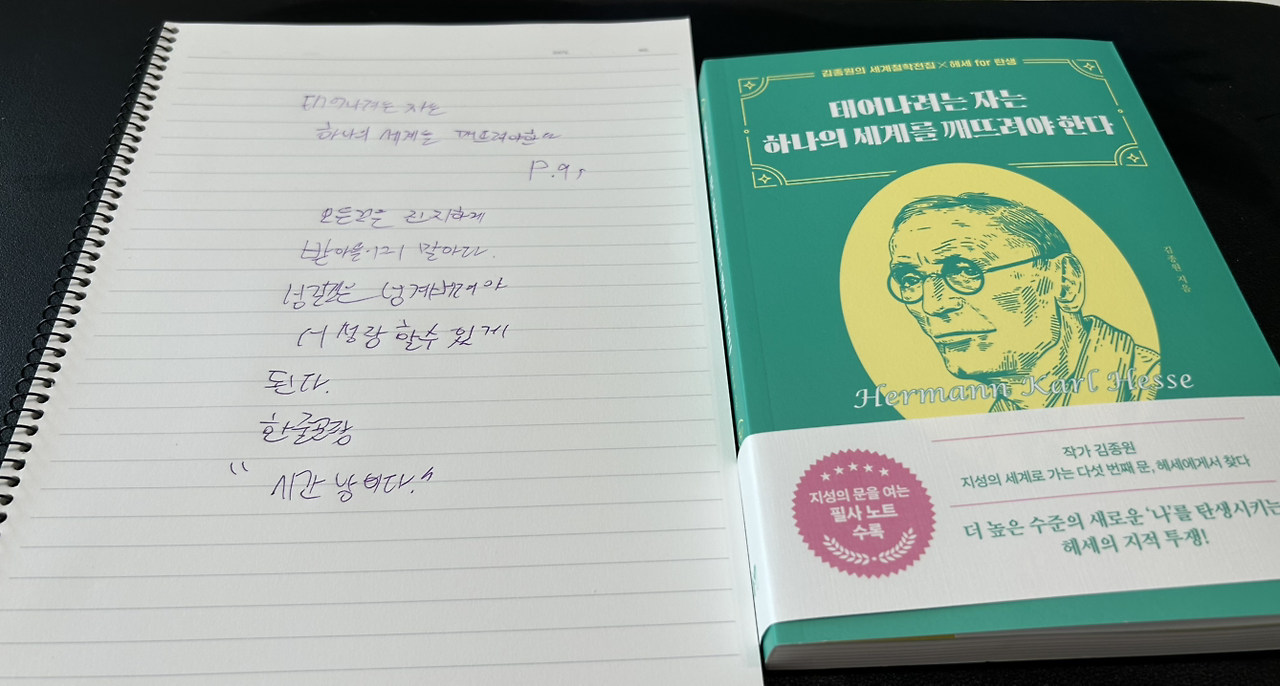 태어나려는 자는
하나의 세계는 깨뜨려야한다
P.9,
모든것은 진지하게
받아들이지 말아라.
넘길것은 넘겨버려야
서 성장 할수 있게
된다.
한줄
"시간 낭비다."
김종원의 세계철학전집 × 헤세 for 탄생
태어나려는 자는
하나의 세계를 깨뜨려야 한다
김종원 지음
Hermann Karl Hesse
지성의 문을 여는
필사 노트
수록
작가 김종원
지성의 세계로 가는 다섯 번째 문, 헤세에게서 찾다
더 높은 수준의 새로운 '나'를 탄생시키는
헤세의 지적 투쟁!